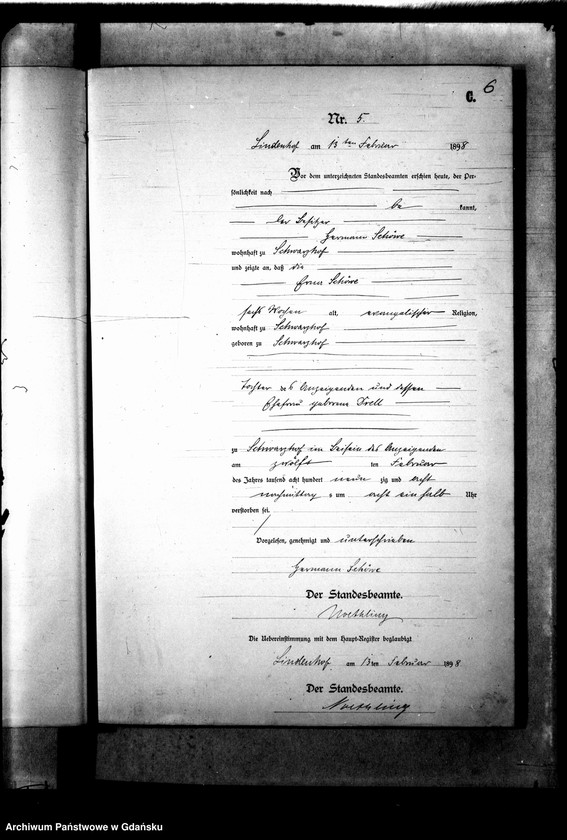 6
C.
Nr. 5.
Lindenhof am 13ten Februar 1898
Vor dem unterzeichneten Standesbeamten erschien heute, der Per-
sönlichkeit nach
be kannt,
der Besitzer
Hermann Schöwe
wohnhaft zu Schwarzhof
und zeigte an, daß die
Erna Schöwe
sechs Wochen alt, evangelischer Religion,
wohnhaft zu Schwarzhof
geboren zu Schwarzhof
Tochter des Anzeigenden und dessen
Ehefrau geborene Prell
zu Schwarzhof im Beisein des Anzeigenden
am zwölften Februar
des Jahres tausend acht hundert neun zig und acht
nachmittags um acht ein halb Uhr
verstorben sei.
Vorgelesen, genehmigt und unterschrieben
Hermann Schöwe
Der Standesbeamte.
Noethling
Die Uebereinstimmung mit dem Haupt-Register beglaubigt
Lindenhof am 13ten Februar 1898
Der Standesbeamte.
Noethling
Archiwum Państwowe w Gdańsku